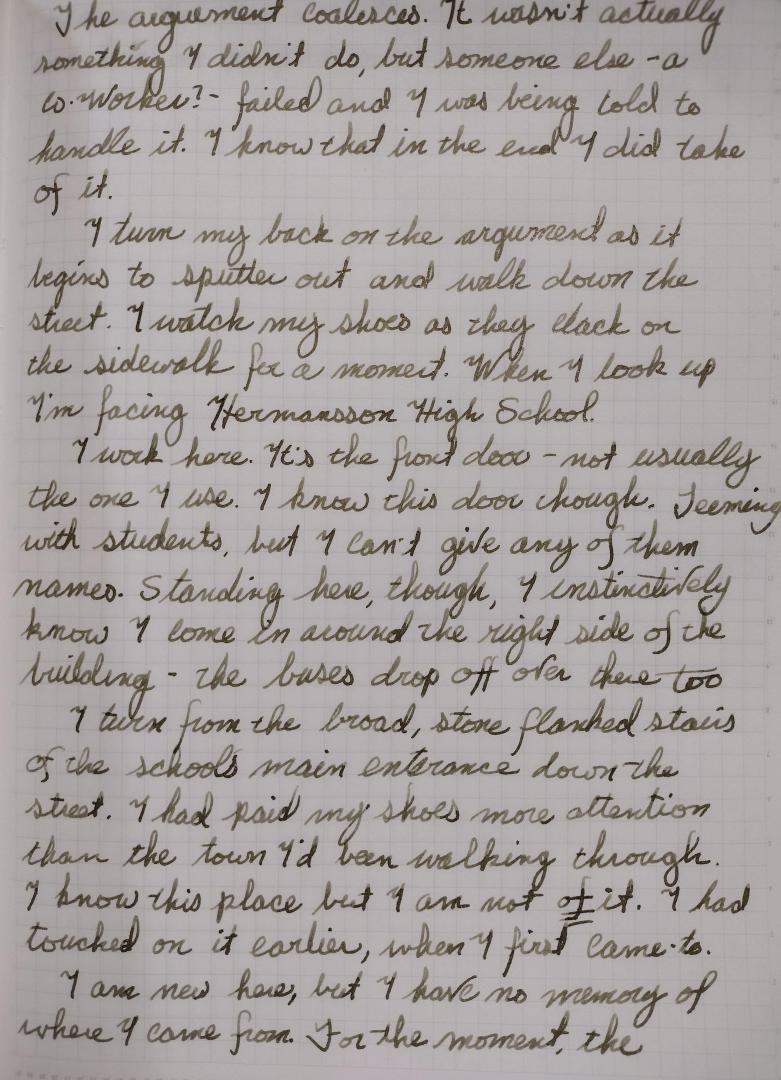 The arguement coalesces. It wasn't actually
something I didn't do, but someone else - a
co-worker? - failed and I was being told to
handle it. I know that in the end I did take
of it.
I turn my back on the argument as it
begins to sputter out and walk down the
street. I watch my shoes as they clack on
the sidewalk for a moment. When I look up
I'm facing Hermansson High School.
I work here. It's the front door - not usually
the one I use. I know this door though. Teeming
with students, but I can't give any of them
names. Standing here, though, I instinctively
know I come in around the right side of the
building - the buses drop off over there too
I turn from the broad, stone flanked stairs
of the school's main enterance down the
street. I had paid my shoes more attention
than the town I'd been walking through.
I know this place but I am not of it. I had
touched on it earlier, when I first came-to.
I am new here, but I have no memory of
where I came from. For the moment, the